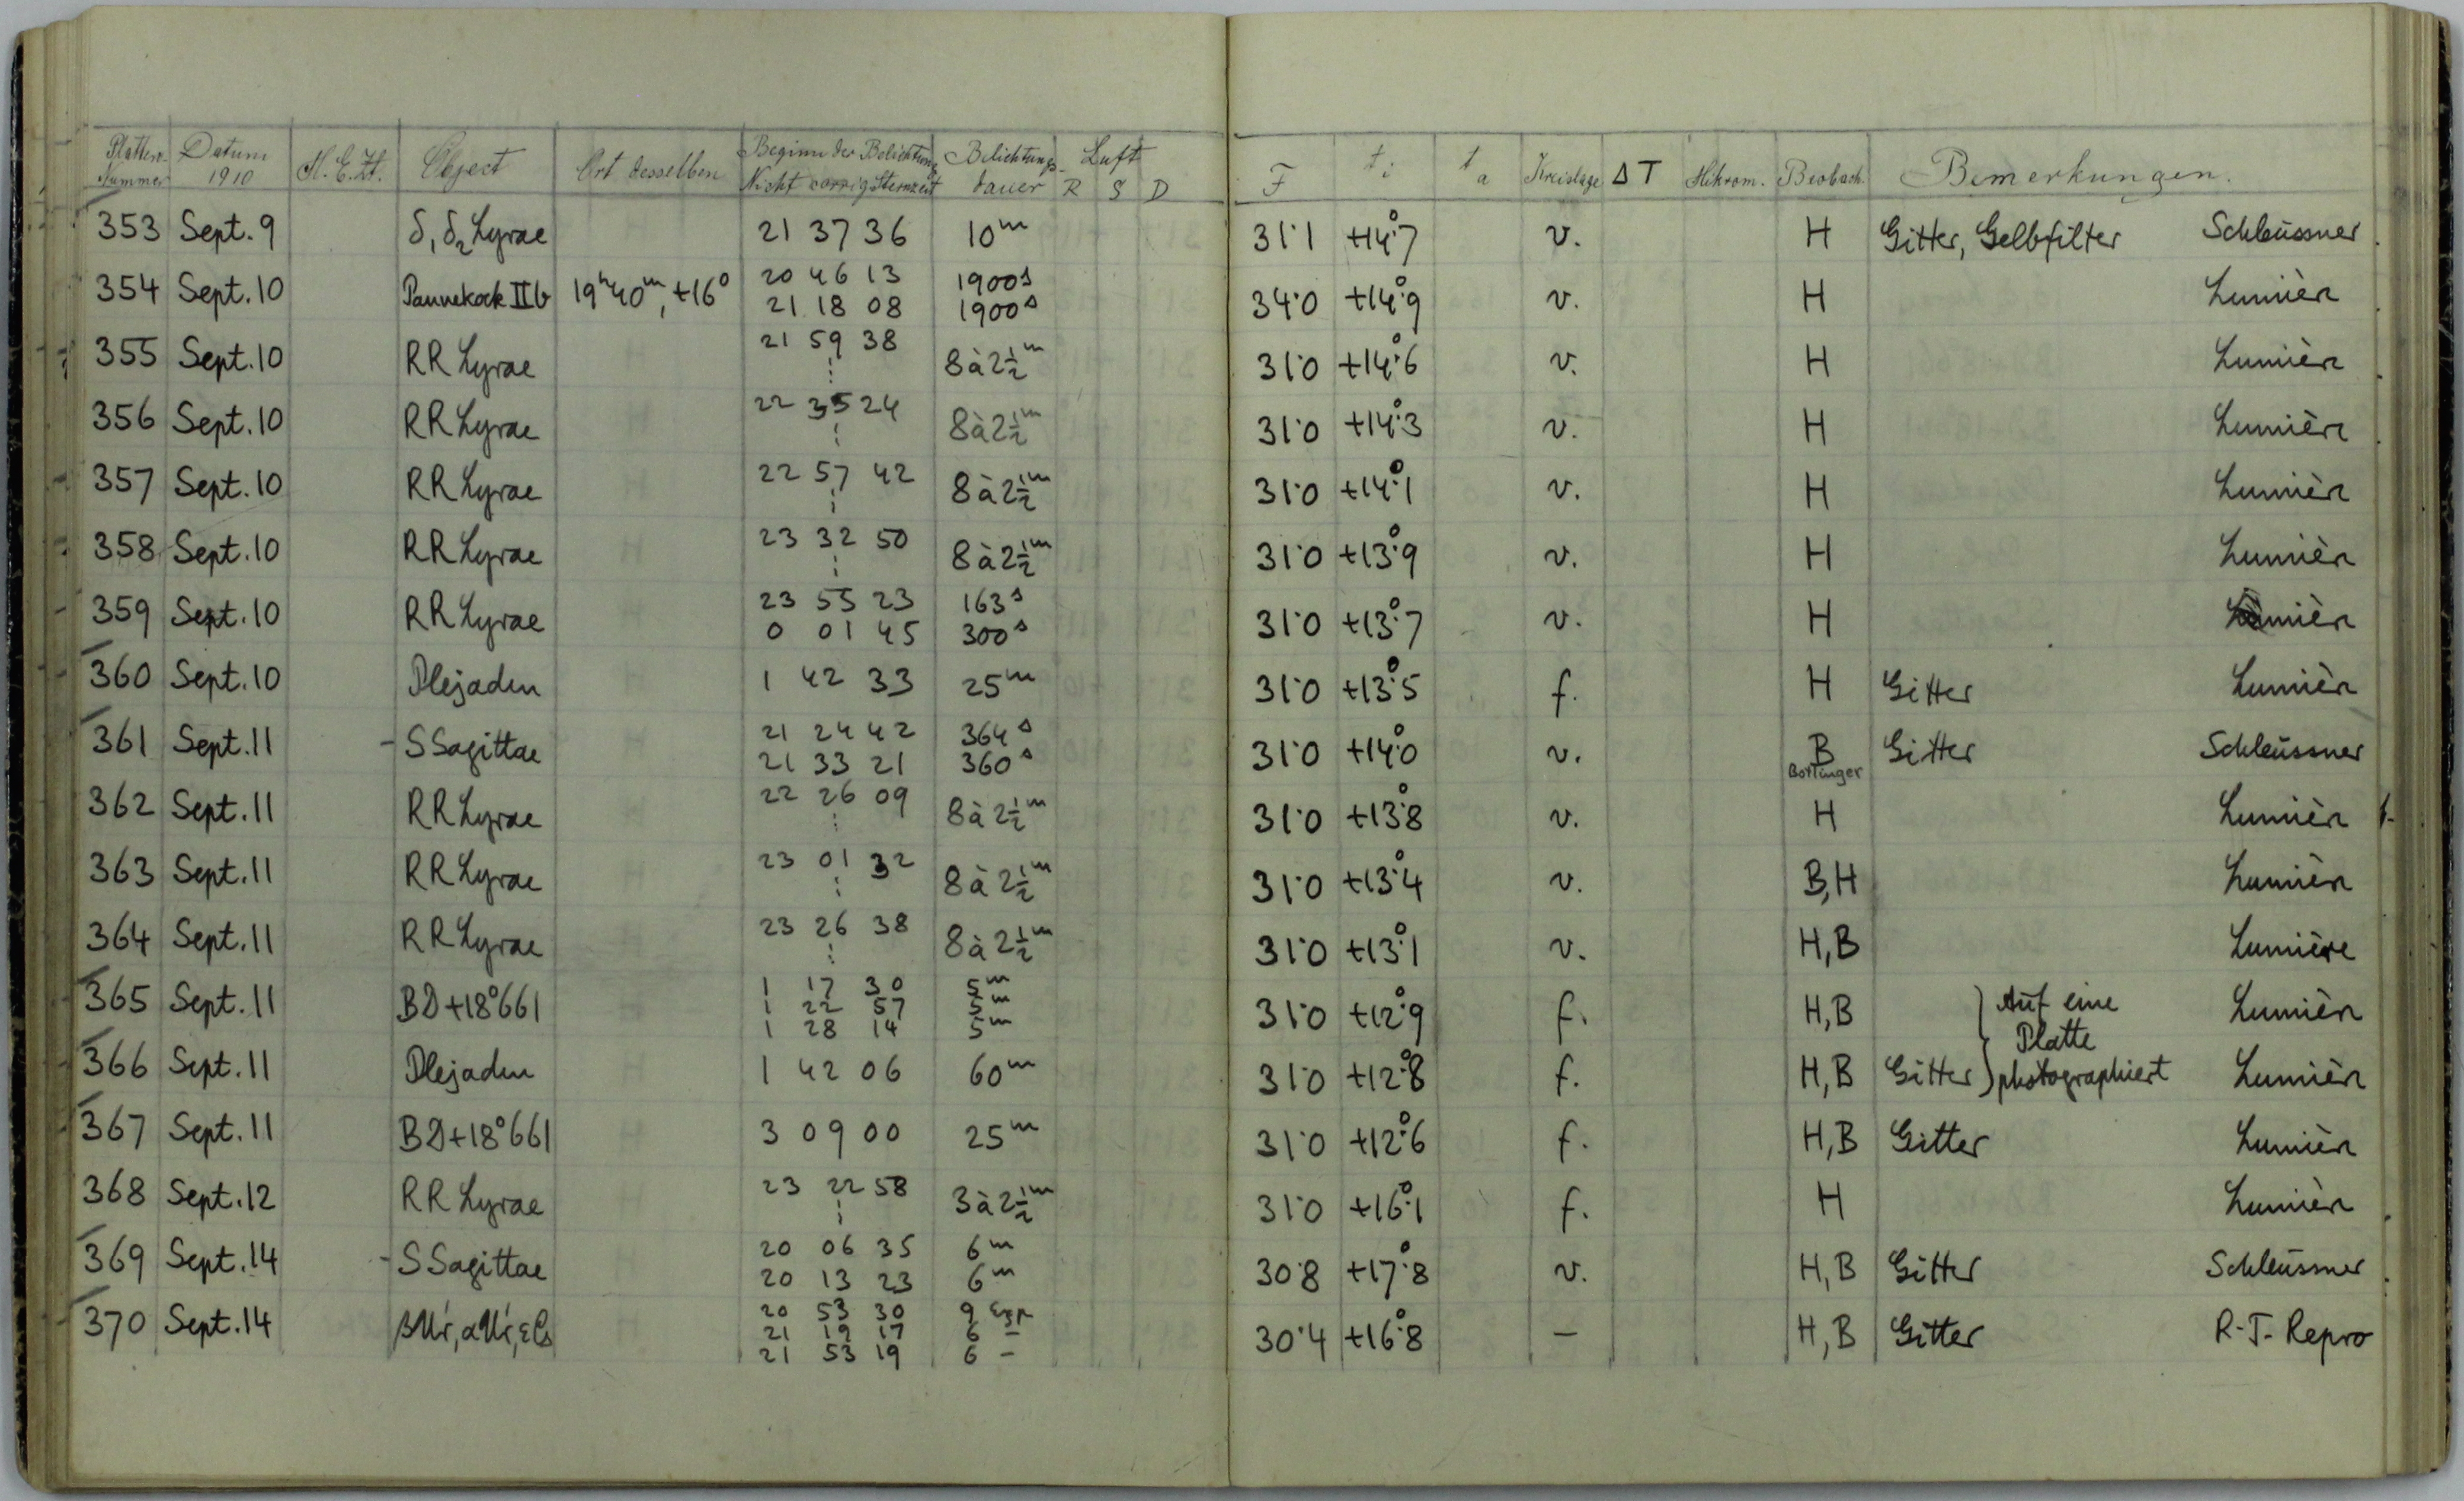 Platten-Nummer Datum 1910 M.E.Zt. Object Ort desselben Beginn der Belichtung Nicht corrig. Sternzeit Belichtungs-dauer Luft R S D F t i t a Kreislage ΔT Mikrom. Beobach. Bemerkungen.
353 Sept. 9 δ1 δ2 Lyrae 21 37 36 10m 31·1 +14°·7 v. H Gitter, Gelbfilter Schleüssner
354 Sept. 10 Pannekoek IIb 19h40m, +16° 20 46 13 1900s 34·0 +14°·9 v. H Lumièr
21 18 08 1900s
355 Sept. 10 RR Lyrae 21 59 38 8 à 2½m 31·0 +14°·6 v. H Lumièr
356 Sept. 10 RR Lyrae 22 35 24 8 à 2½m 31·0 +14°·3 v. H Lumièr
357 Sept. 10 RR Lyrae 22 57 42 8 à 2½m 31·0 +14°·1 v. H Lumièr
358 Sept. 10 RR Lyrae 23 32 50 8 à 2½m 31·0 +13°·9 v. H Lumièr
359 Sept. 10 RR Lyrae 23 55 23 163s 31·0 +13°·7 v. H Lumièr
0 01 45 300s
360 Sept. 10 Plejaden 1 42 33 25m 31·0 +13°·5 f. H Gitter Lumièr
361 Sept. 11 - S Sagittae 21 24 42 364s 31·0 +14°·0 v. B Gitter Schleüssner
21 33 21 360s Bottlinger
362 Sept. 11 RR Lyrae 22 26 09 8 à 2½m 31·0 +13°·8 v. H Lumièr
363 Sept. 11 RR Lyrae 23 01 32 8 à 2½m 31·0 +13°·4 v. B,H Lumièr
364 Sept. 11 RR Lyrae 23 26 38 8 à 2½m 31·0 +13°·1 v. H,B Lumière
365 Sept. 11 BD+18°661 1 17 30 5m 31·0 +12°·9 f. H,B Auf eine Lumièr
1 22 57 5m
1 28 14 5m Platte
366 Sept. 11 Plejaden 1 42 06 60m 31·0 +12°·8 f. H,B Gitter photographiert Lumièr
367 Sept. 11 BD+18°661 3 09 00 25m 31·0 +12°·6 f. H,B Gitter Lumièr
368 Sept. 12 RR Lyrae 23 22 58 3 à 2½m 31·0 +16°·1 f. H Lumièr
369 Sept. 14 - S Sagittae 20 06 35 6m 30·8 +17°·8 v. H,B Gitter Schleüssner
20 13 23 6m
370 Sept. 14 20 53 30 9 Exp 30·4 +16°·8 — H,B Gitter R-J- Repro
21 19 17 6 —
21 53 19 6 —